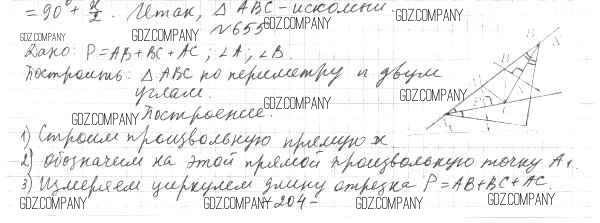 = 90° + α/2. Итак, △ ABC - искомый.
GDZ.COMPANY
№655
GDZ.COMPANY GDZ.COMPANY GDZ.COMPANY
Дано: P = AB + BC + AC; ∠A; ∠B.
Построить: △ ABC по периметру и двум
углам.
GDZ.COMPANY GDZ.COMPANY GDZ.COMPANY
Построение.
GDZ.COMPANY GDZ.COMPANY
1) Строим произвольную прямую x
2) обозначем на этой прямой произвольную точку A₁.
3) Измеряем циркулем длину отрезка P = AB + BC + AC.
GDZ.COMPANY GDZ.COMPANY GDZ.COMPANY GDZ.COMPANY
- 204 -